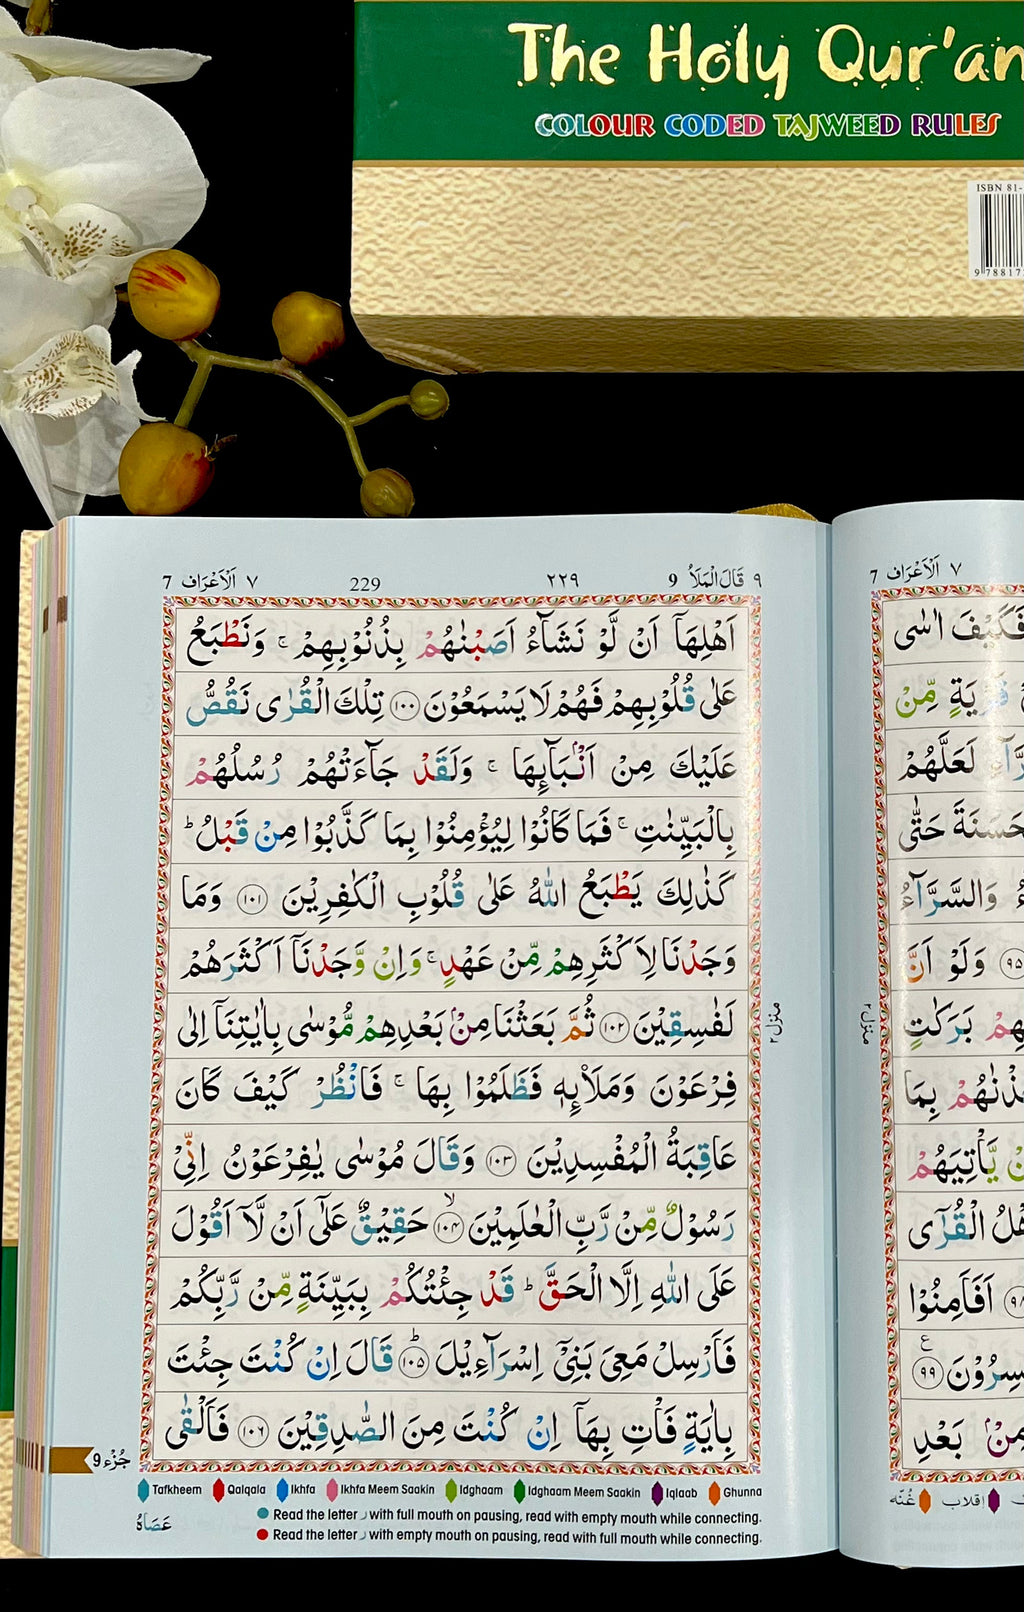 The Holy Qur'an
COLOUR CODED TAJWEED RULES
ISBN 81-
9 78817
7 اَلْاَعْرَاف ٧ 229 ٢٢٩ 9 قَالَ الْمَلَاُ ٩
اَهْلِهَاۤ اَنْ لَّوْ نَشَآءُ اَصَبْنٰهُمْ بِذُنُوْبِهِمْ ۚ وَنَطْبَعُ
عَلٰى قُلُوْبِهِمْ فَهُمْ لَا يَسْمَعُوْنَ ﴿١٠٠﴾ تِلْكَ الْقُرٰى نَقُصُّ
عَلَيْكَ مِنْ اَنْۢبَآئِهَا ۚ وَلَقَدْ جَآءَتْهُمْ رُسُلُهُمْ
بِالْبَيِّنٰتِ ۚ فَمَا كَانُوْا لِيُؤْمِنُوْا بِمَا كَذَّبُوْا مِنْ قَبْلُ ؕ
كَذٰلِكَ يَطْبَعُ اللّٰهُ عَلٰى قُلُوْبِ الْكٰفِرِيْنَ ﴿١٠١﴾ وَمَا
وَجَدْنَا لِاَكْثَرِهِمْ مِّنْ عَهْدٍ ۚ وَاِنْ وَّجَدْنَاۤ اَكْثَرَهُمْ
لَفٰسِقِيْنَ ﴿١٠٢﴾ ثُمَّ بَعَثْنَا مِنْۢ بَعْدِهِمْ مُّوْسٰى بِاٰيٰتِنَاۤ اِلٰى
فِرْعَوْنَ وَمَلَا۟ئِهٖ فَظَلَمُوْا بِهَا ۚ فَانْظُرْ كَيْفَ كَانَ
عَاقِبَةُ الْمُفْسِدِيْنَ ﴿١٠٣﴾ وَقَالَ مُوْسٰى يٰفِرْعَوْنُ اِنِّىْ
رَسُوْلٌ مِّنْ رَّبِّ الْعٰلَمِيْنَ ۙ﴿١٠٤﴾ حَقِيْقٌ عَلٰۤى اَنْ لَّاۤ اَقُوْلَ
عَلَى اللّٰهِ اِلَّا الْحَقَّ ؕ قَدْ جِئْتُكُمْ بِبَيِّنَةٍ مِّنْ رَّبِّكُمْ
فَاَرْسِلْ مَعِىَ بَنِىْۤ اِسْرَآءِيْلَ ؕ﴿١٠٥﴾ قَالَ اِنْ كُنْتَ جِئْتَ
بِاٰيَةٍ فَاْتِ بِهَاۤ اِنْ كُنْتَ مِنَ الصّٰدِقِيْنَ ﴿١٠٦﴾ فَاَلْقٰى
منزل ٢
جُزْء 9
Tafkheem Qalqala Ikhfa Ikhfa Meem Saakin Idghaam Idghaam Meem Saakin Iqlaab Ghunna
Read the letter ر with full mouth on pausing, read with empty mouth while connecting.
Read the letter ر with empty mouth on pausing, read with full mouth while connecting.
عَصَاهُ
7 اَلْاَعْرَاف ٧
فَكَيْفَ اٰسٰى
قَرْيَةٍ مِّنْ
لَعَلَّهُمْ
حَتّٰى
وَالسَّرَّآءُ
﴿٩٥﴾ وَلَوْ اَنَّ
بَرَكٰتٍ
بِمَا
يَّاْتِيَهُمْ
الْقُرٰٓى
اَفَاَمِنُوْا
ع
﴿٩٩﴾
مِنْۢ بَعْدِ
منزل ٢
اقلاب غُنّه